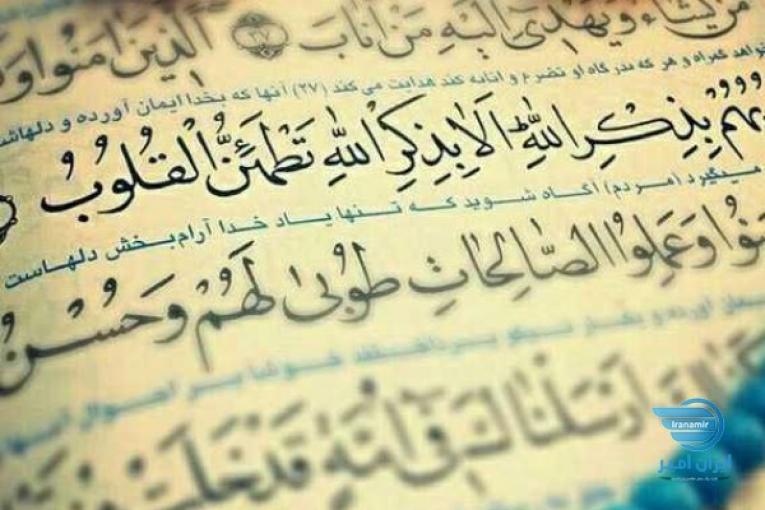 مَن يَشَاءُ وَيَهْدِي إِلَيْهِ مَنْ أَنَابَ ﴿٢٧﴾ الَّذِينَ آمَنُوا وَ
خواهد گمراه و هر که بدرگاه او تضرع و انابه کند هدایت می کند (٢٧) آنها که بخدا ایمان آورده و دلهاش
بُهُم بِذِكْرِ اللَّهِ أَلَا بِذِكْرِ اللَّهِ تَطْمَئِنُّ الْقُلُوبُ
میگیرد (مردم) آگاه شوید که تنها یاد خدا آرام بخش دلهاست
مَنُوا وَعَمِلُوا الصَّالِحَاتِ طُوبَىٰ لَهُمْ وَحُسْنُ
یمان آورده و بکار نیکو پرداختند خوشا بر احوال آنها
أَرْسَلْنَاكَ فِي أُمَّةٍ قَدْ خَلَتْ
Iranamir
ایران امیر